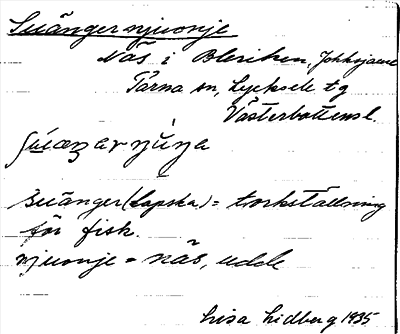 Suängernjuonje
Näs i Bleriken, Jokksjaure
Tärna sn, Lycksele tg
Västerbottensl.
Suänger (Lapska) = torkställning
för fisk.
njuonje = näs, udde
Lisa Lidberg 1935